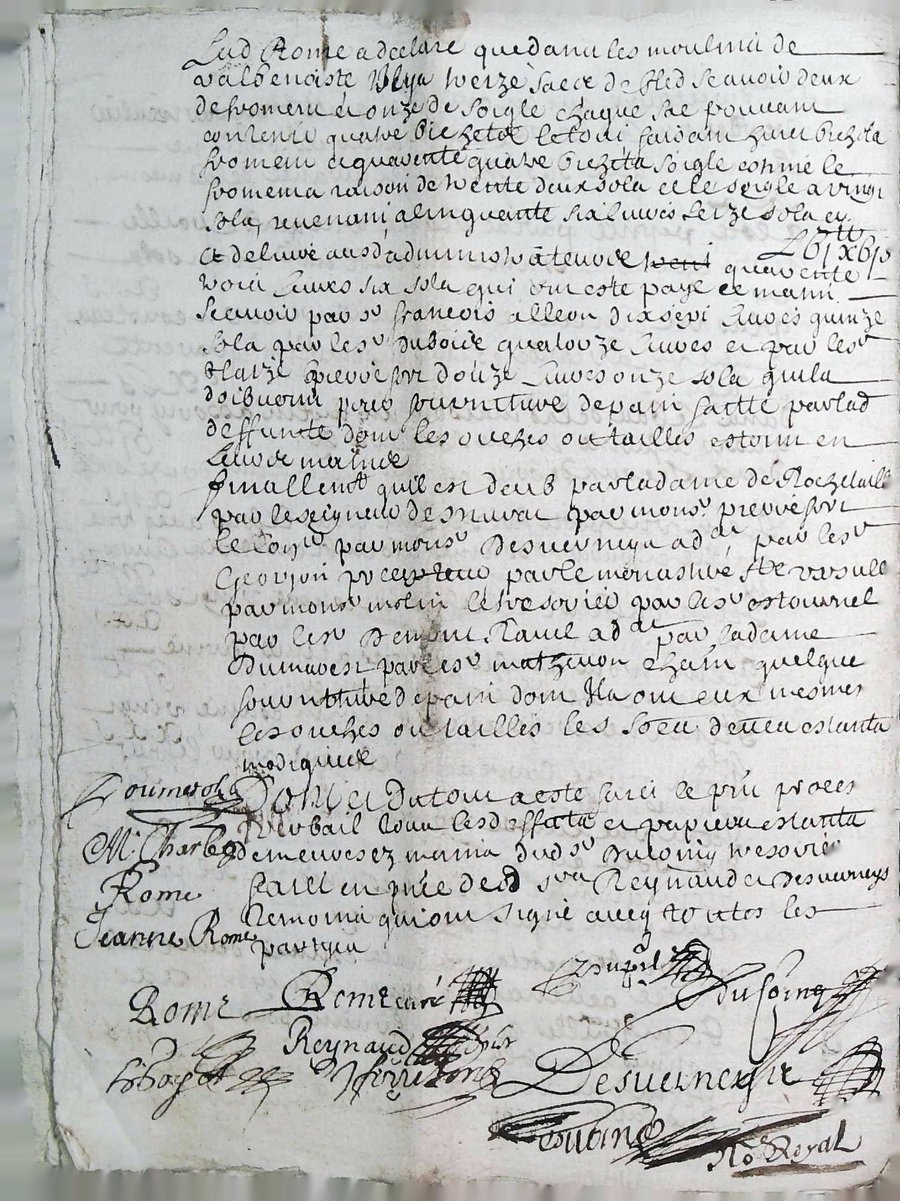 Lad Rome a declare que dans les moulins de
valbenoiste Il y a treize sacz de bled scavoir deux
de froment et onze de soigle chaque sac pouvant
contenir quatre bichetz le tout faisant huict bichets
froment et quarente quatre bichets soigle estimé le
froment a raison de trente deux sols et le soigle a vingt
sols, revenant a cinquante six livres seize sols cy
L6tt X6s
Et delivré ausd administrateurs de quarente
trois livres six sols qui ont este paye ce matin
Scavoir par sr francois alleon dix sept livres quinze
sols par le sr Dubois quatorze livres et par le sr
Blaize pierrefort douze livres onze sols quils
doibvent pour fourniture de pain faitte par lad
deffunte dont les ouches ou tailles estoint en
leurs mains
finallemt quil est deub par la dame de Rochetaillé
par le seigneur de par monsr pierrefort
le par monsr Desverneys ad at par le sr
Georjon precepteur par le monastere Ste Ursulle
par monsr molin le tresorier par le sr estournel
par le sr ad at par la dame
Dumarest par le sr mathevon chasn quelque
fourniture de pain dont Ils ont eux mesmes
les ouches ou tailles les soeu estants
modiques
Dont et du tout a este faict le pnt proces
verbail tous les deffets et papiers estants
demeures ez mains dud sr tresorier
faict en pnce de srs Reynaud et Desverneys
temoins qui ont signé avec touttes les
parties
M. Charles
Rome
Jeanne Rome
Rome Rome curé
Reynaud
Desverneys
No Royal